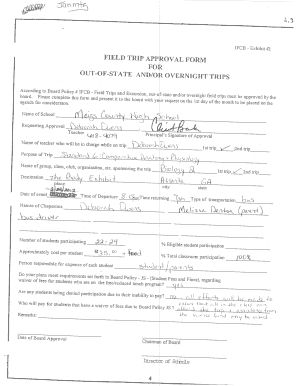 IFCB - Exhibit #2
FIELD TRIP APPROVAL FORM
FOR
OUT-OF-STATE AND/OR OVERNIGHT TRIPS
According to Board Policy # IFCB - Field Trips and Excursion, out-of-state and/or overnight field trips must be approved by the
board. Please complete this form and present it to the board with your request on the 1st day of the month to be placed on the
agenda for consideration.
Name of School Meigs County High School
Requesting Approval Deborah Owens
Teacher Principal's Signature of Approval
Name of teacher who will be in charge while on trip Deborah Owens 1st trip 2nd trip
Purpose of Trip
Name of group, class, club, organization, etc. sponsoring the trip Biology 2 1st trip 2nd trip
Destination The Body Exhibit Atlanta GA
place city state
Date of event Time of Departure 8:00 Time returning Type of transportation bus
Names of Chaperons Deborah Owens Melissa Denton (parent)
bus driver
Number of students participating 22-24 % Eligible student participation
Approximately cost per student $25.00 + food % Total classroom participation 100%
Person responsible for expense of each student student/parents
Do your plans meet requirements set forth in Board Policy - JS - (Student Fees and Fines), regarding
waiver of fees for students who are on the free/reduced meals program? yes
Are any students being denied participation due to their inability to pay? no - all efforts will be made to
Who will pay for students that have a waiver of fees due to Board Policy
Remarks:
Date of Board Approval
Chairman of Board
Director of Schools
4